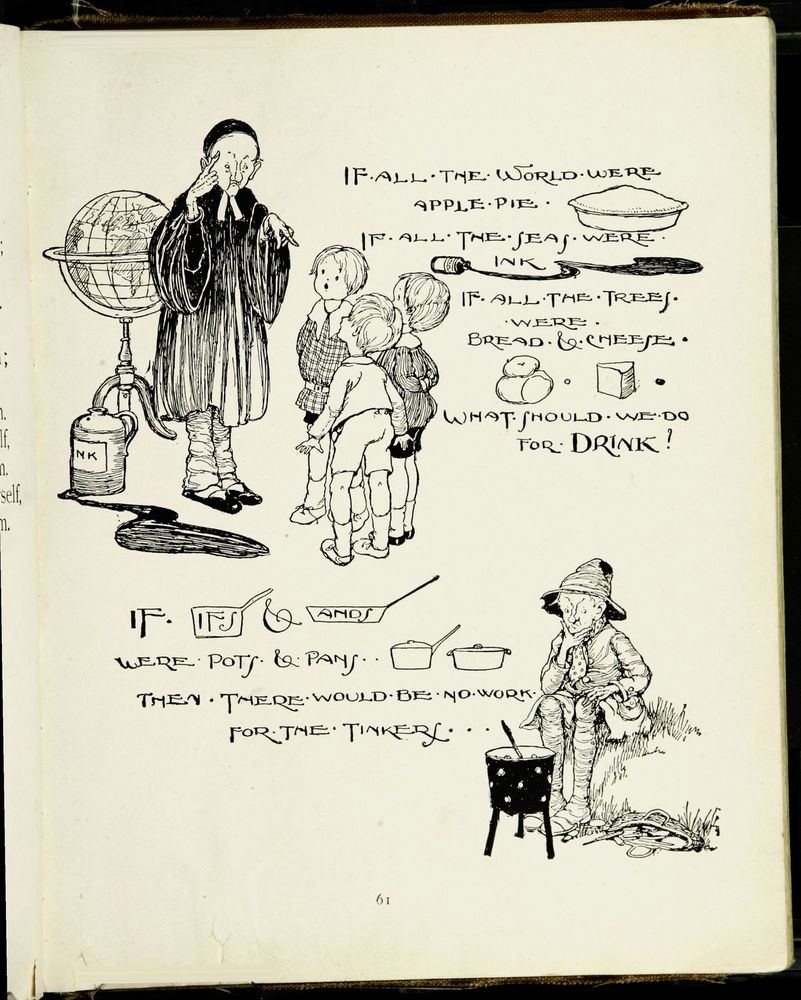 IF·ALL·THE·WORLD·WERE
APPLE·PIE·
IF·ALL·THE·SEAS·WERE·
INK
IF·ALL·THE·TREES·
·WERE·
BREAD·&·CHEESE·
WHAT·SHOULD·WE·DO
FOR·DRINK!
NK
IF· IFS & ANDS
WERE·POTS·&·PANS··
THEN·THERE·WOULD·BE·NO·WORK·
FOR·THE·TINKERS···
61
;
;
m.
lf,
m.
self,
m.